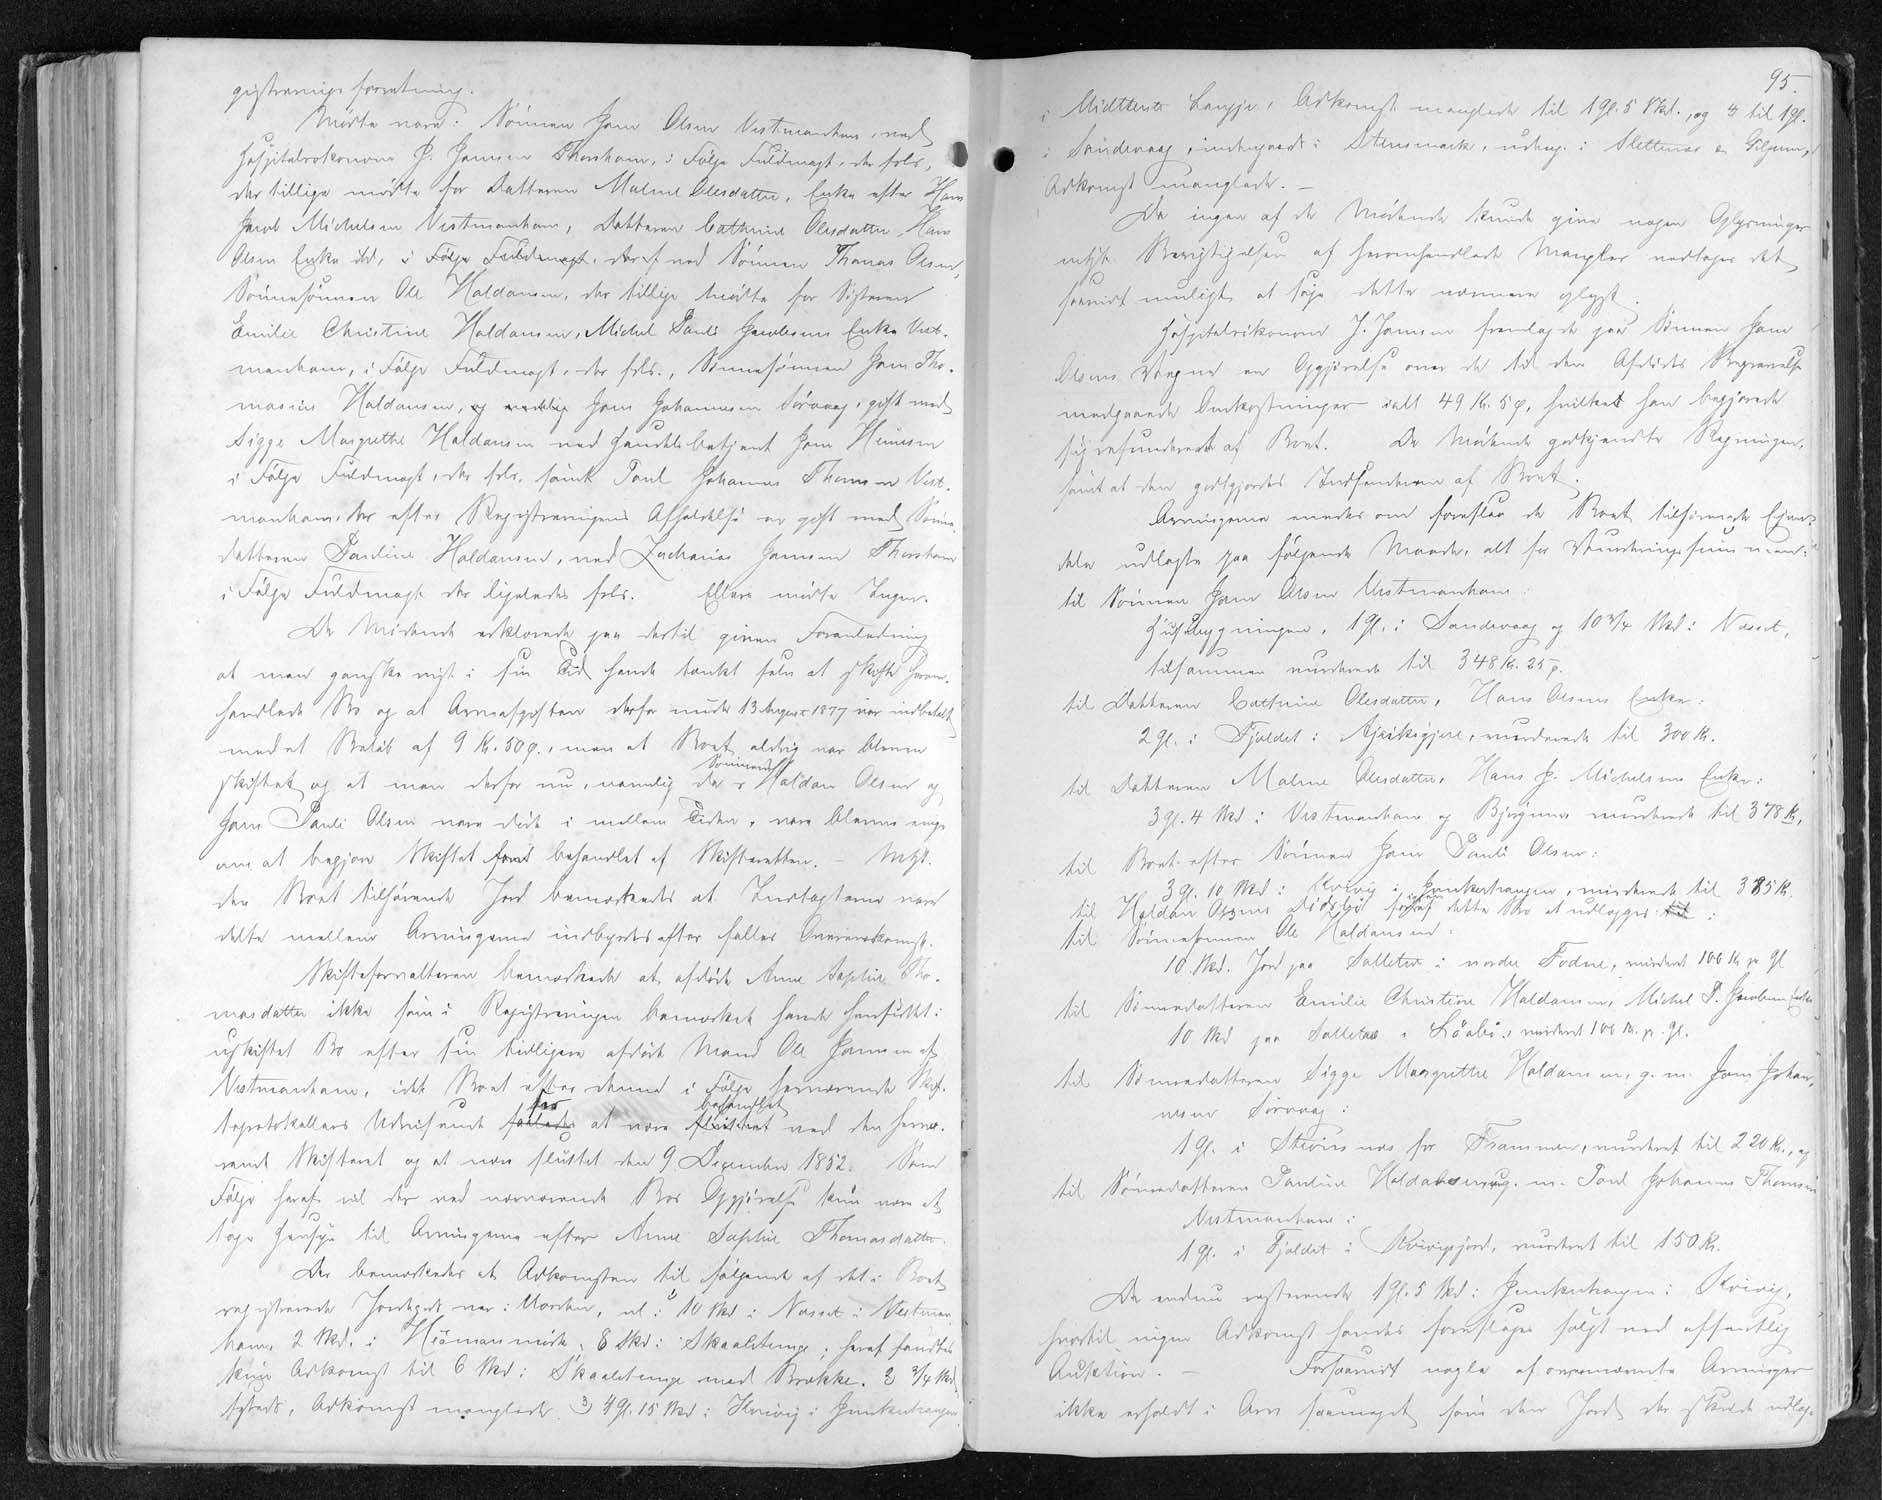 gistreringsforretning.
Mødte vare: Sønnen Jens Olsen Vestmanhavn, ved
Hospitalsøkonom J. Jensen Thorshavn, i Følge Fuldmagt, der fols.,
der tillige mødte for Datteren Malene Olesdatter, Enke efter Hans
Jacob Michelsen Vestmanhavn, Datteren Cathrine Olesdatter, Hans
Olsen Enke ibd, i Følge Fuldmagt, der f. ved Sønnen Thomas Olsen,
Sønnesønnen Ole Haldansen, der tillige mødte for Søsteren
Emilie Christine Haldansen, Michel Pauli Jacobsens Enke Vest-
manhavn, i Følge Fuldmagt, der fols., Sønnesønnen Jens Tho-
masius Haldansen, og Jens Johannesen Sørvaag, gift med
Sigge Margrethe Haldansen ved Handelsbetjent Jens
i Følge Fuldmagt, der fols. samt Poul Johannes Thomsen Vest-
manhavn, der efter Registreringens Afholdelse er gift med Sønne-
datteren Pauline Haldansen, ved Zacharias Jensen Thorshavn
i Følge Fuldmagt der ligeledes fols. Ellers mødte Ingen.
De Mødende erklærede paa dertil given Foranledning
at man ganske vist i sin Tid havde tænkt selv at skifte herom-
handlede Bo og at Arveafgiften derfor under 13 August 1877 var indbetalt
med et Beløb af 9 Kr. 50 ø., men at Boet aldrig var blevet
skiftet og at man derfor nu, nemlig da Sønnerne Haldan Olsen og
Jens Pauli Olsen vare døde i mellem Tiden, vare blevne enige
om at begjære Skiftet behandlet af Skifteretten. – Mht.
den Boet tilhørende Jord bemærkedes at Indtægterne vare
delte mellem Arvingerne indbyrdes efter fælles Overenskomst.
Skifteforvalteren bemærkede at afdøde Anne Sophie Tho-
masdatter ikke som i Registreringen bemærket havde hensiddet i
uskiftet Bo efter sin tidligere afdøde Mand Ole Jensen af
Vestmanhavn, idet Boet efter denne i Følge herværende Skif-
teprotokollers Udvisende at være behandlet ved den hervæ-
rende Skifteret og at være sluttet den 9 December 1852. Som
Følge heraf vil der ved nærværende Bos Opgjørelse kun være at
tage Hensyn til Arvingerne efter Anne Sophie Thomasdatter.
Der bemærkedes at Adkomsten til følgende af det i Boet
registrerede Jordegods var i Uorden, nl: 1) 10 Skd i Nesset i Vestman-
havn, 2 Skd. i, 8 Skd i Skaaletinge, heraf fandtes
kun Adkomst til 6 Skd i Skaaletinge med Brekke. 2) 3/4 Skd
sysseds, Adkomst manglede 3) 4 Gl. 15 Skd i Kvivig i Junkerhaugen
95.
i Midtterste, Adkomst manglede til 1 Gl. 5 Skd., og 4 til 1 Gl.
i Sandevaag, indegaards i Steinsmark, udeng. i Slettenes &
Adkomst manglede. –
Da ingen af de Mødende kunde give nogen Oplysninger
mht. Berigtigelsen af heromhandlede Mangler vedtoges det
saavidt muligt at søge dette nærmere oplyst.
Hospitalsøkonom J. Jensen fremlagde paa Sønnen Jens
Olsens Vegne en Opgjørelse over de til den Afdødes Begravelse
medgaaede Omkostninger ialt 49 Kr. 5 ø., hvilket han begjærede
sig refunderet af Boet. De Mødende godkjendte Regningen,
samt at den godtgjordes Indsenderen af Boet.
Arvingerne enedes om foreslaa de Boet tilhørende Ejen-
dele udlagte paa følgende Maade, alt for Vurderingssummen:
til Sønnen Jens Olsen Vestmanhavn:
Husbygningen, 1 Gl. i Sandevaag og 10 3/4 Skd i Nesset,
tilsammen vurderede til 348 Kr. 25 ø.
til Datteren Cathrine Olesdatter, Hans Olsens Enke:
2 Gl. i Fjeldet i, vurderede til 300 Kr.
til Datteren Malene Olesdatter, Hans J. Michelsens Enke:
3 Gl. 4 Skd i Vestmanhavn og vurderede til 378 Kr.,
til Boet efter Sønnen Jens Pauli Olsen:
3 Gl. 10 Skd i Kvivig i Junkerhaugen, vurderede til 385 Kr.
til Haldan Olsens Dødsbo af dette Bo at udlægges:
til Sønnesønnen Ole Haldansen:
10 Skd. Jord paa Selletræ i nordre Fodne, vurderet 106 Kr pr Gl
til Sønnedatteren Emilie Christine Haldansen, Michel P. Jacobsens Enke
10 Skd paa Selletræ i, vurderet 106 Kr. pr. Gl.
til Sønnedatteren Sigge Margrethe Haldansen, g. m. Jens Johan-
nesen Sørvaag:
1 Gl. i Steinsnæs for Frammen, vurderet til 220 Kr., og
til Sønnedatteren Pauline Haldansen, g. m. Poul Johannes Thomsen
Vestmanhavn:
1 Gl. i Fjeldet i Kvivigsjord, vurderet til 150 Kr.
De endnu resterende 1 Gl. 5 Skd i Junkerhaugen i Kvivig,
hvortil ingen Adkomst havdes foresloges solgt ved offentlig
Auktion. – Forsaavidt nogle af ovennævnte Arvinger
ikke erholdt i Arv saameget som den Jord der skulde udlæg-